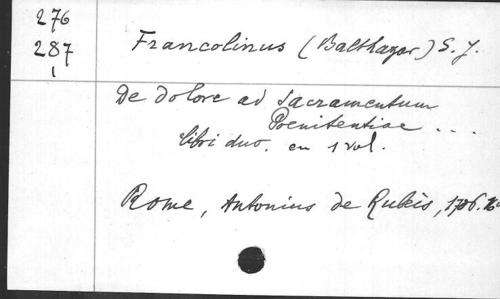 276
287
1
Francolinus (Balthazar) S. J.
De dolore ad Sacramentum
Poenitentiae ...
libri duo. en 1 vol.
Rome, Antonius de Rubeis, 1706.